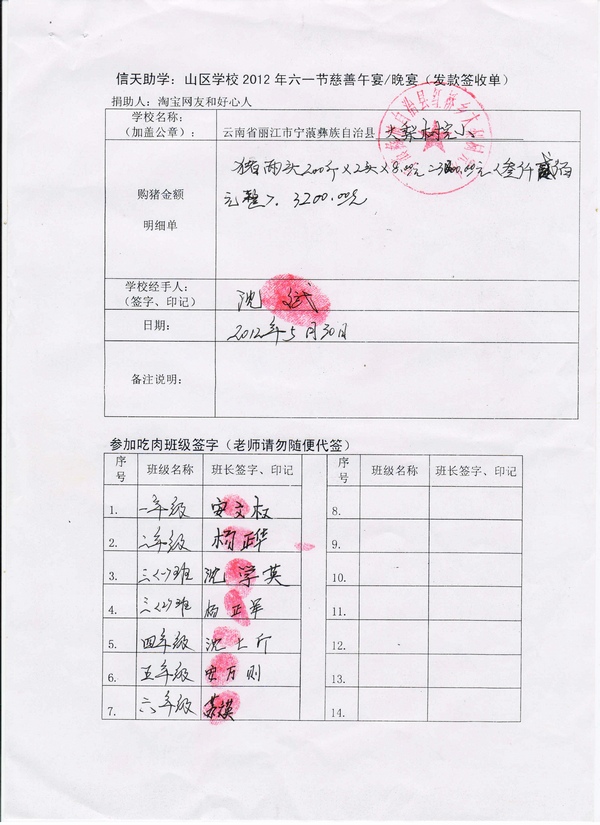 信天助学：山区学校2012年六一节慈善午宴/晚宴（发款签收单）
捐助人：淘宝网友和好心人
学校名称：
（加盖公章）：
云南省丽江市宁蒗彝族自治县 大梨树完小
购猪金额
明细单
猪两头200斤×2头×8.00元=3200.00元（叁仟贰佰
元整）. 3200.00元
学校经手人：
（签字、印记）
沈斌
日期：
2012年5月30日
备注说明：
参加吃肉班级签字（老师请勿随便代签）
序号 班级名称 班长签字、印记 序号 班级名称 班长签字、印记
1. 一年级 安文权 8.
2. 二年级 杨正华 9.
3. 三(一)班 沈学英 10.
4. 三(2)班 杨正军 11.
5. 四年级 沈上斤 12.
6. 五年级 安万则 13.
7. 六年级 14.